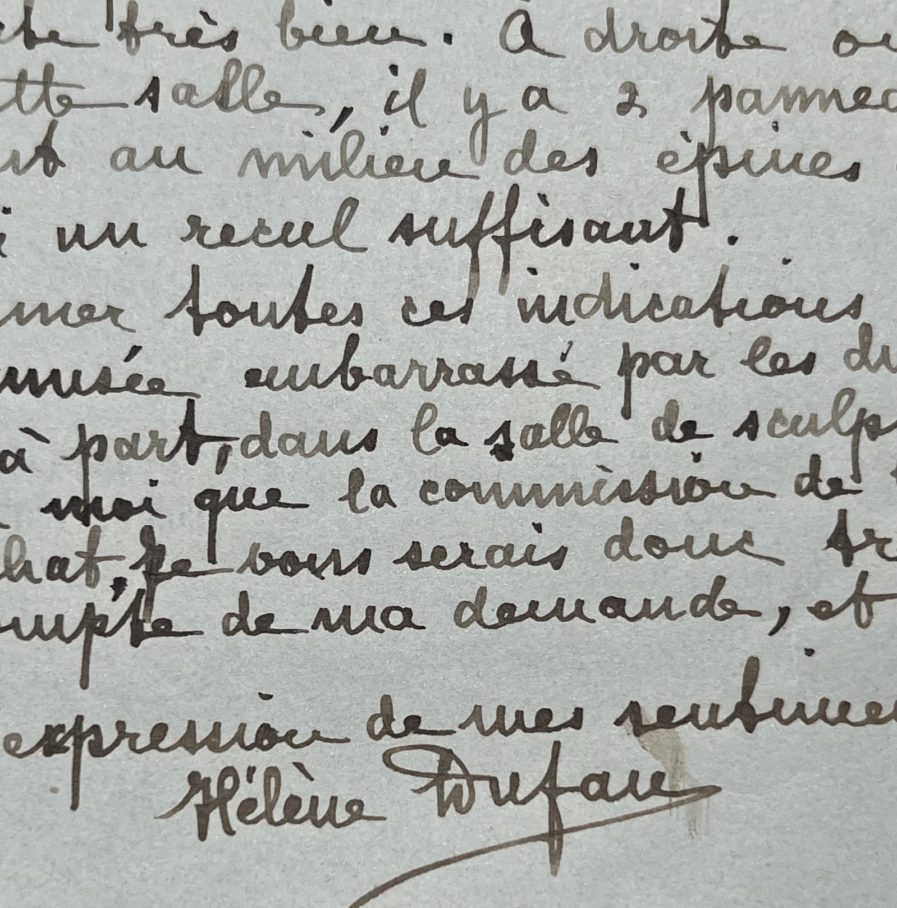 te très bien. A droite ou
ette salle, il y a 2 pannea
nt au milieu des épines
i un recul suffisant.
mer toutes ces indications
musée embarrassé par les di
à part, dans la salle de sculp
moi que la commission de
hat. Je vous serais donc tr
ompte de ma demande, et
expression de mes sentimen
Hélène Dufau